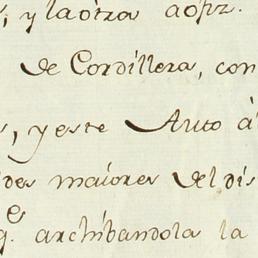 , y la otra a ofiz.
de Cordillera, con
, y este Auto à
des maiores del dis
q.e archibandola la